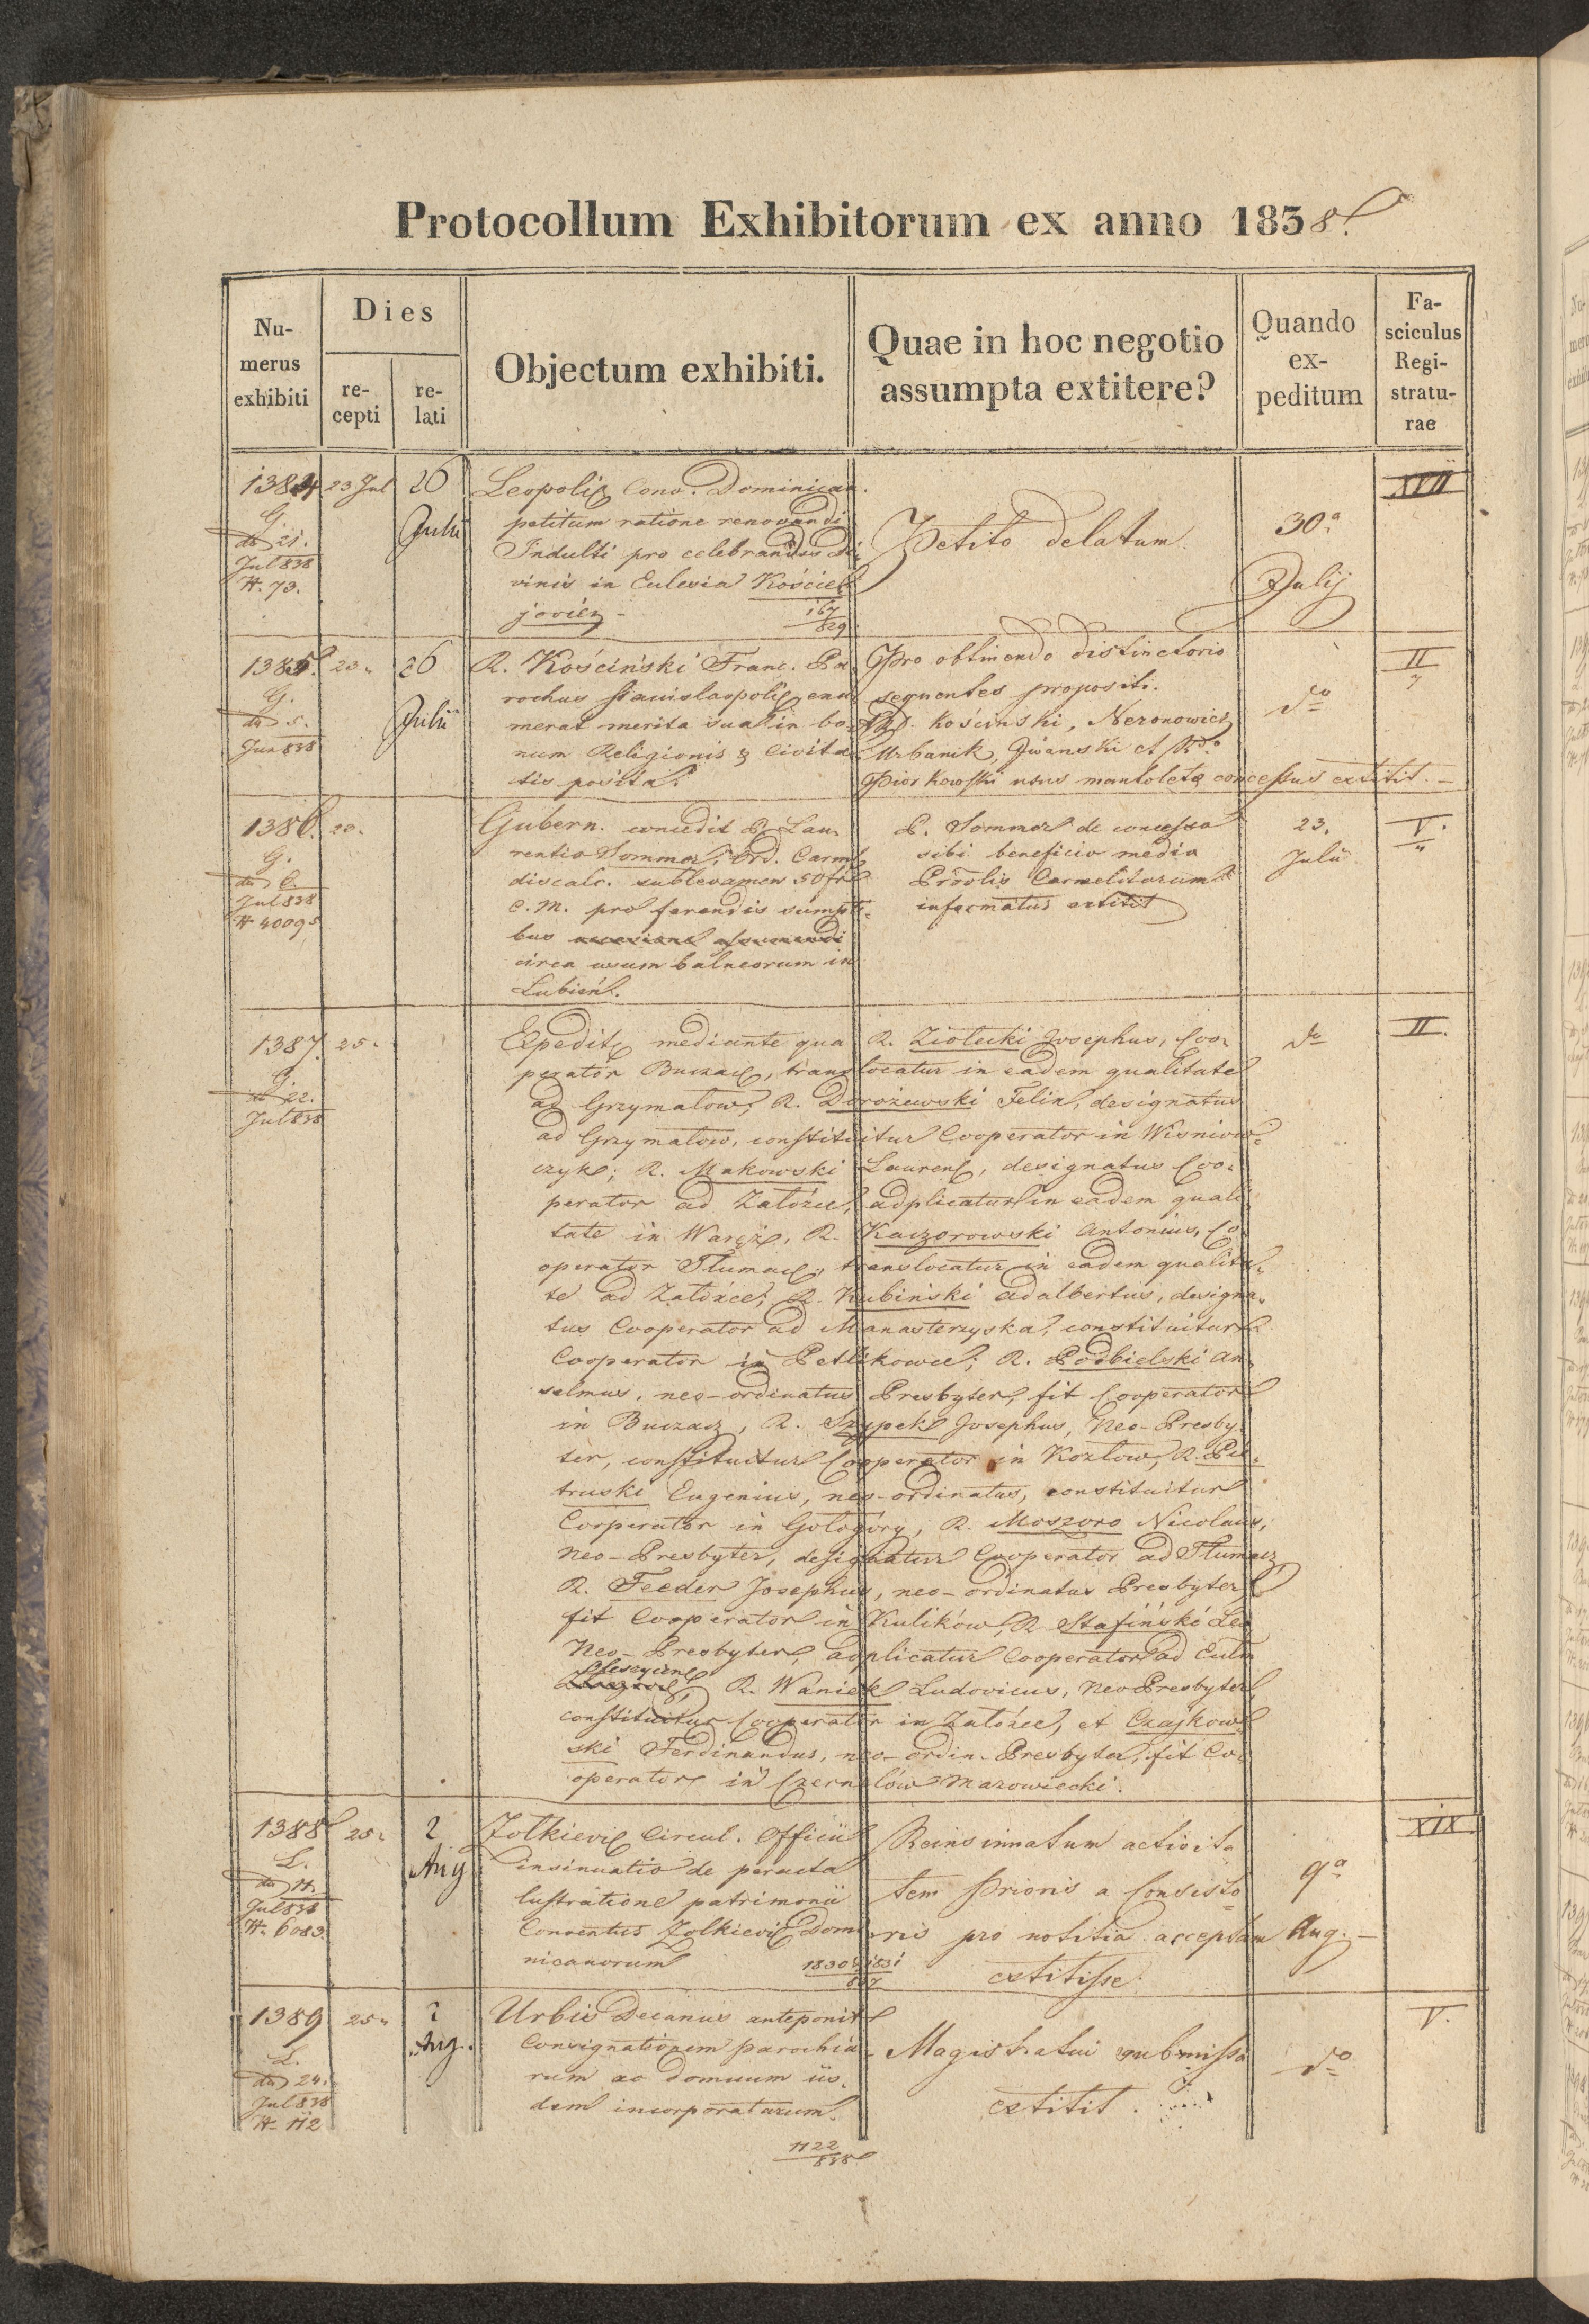 Protocollum Exhibitorum ex anno 1838.
Nu-
merus
exhibiti
Dies
re-
cepti
re-
lati
Objectum exhibiti.
Quae in hoc negotio
assumpta extitere?
Quando
ex-
peditum
Fa-
sciculus
Regi-
stratu-
rae
1384
G.
dto 21.
Jul 838
N. 73.
23 Jul
26
Julii
Leopolis Conv. Dominican.
petitum ratione renovandi
Indulti pro celebrandis Di-
vinis in Eulesia Kościel
joviem
167
829
Petito delatum.
30a
Julij
XVII
1385
G.
dto 5.
Jun 838
23.
26
Julii
R. Kościński Franc. Pa-
rochus Stanislaopolis enu-
merat merita sua in bo-
num Religionis & Civita-
tis posita.
Pro obtinendo distinctorio
sequentes propositi.
RR. Kościński, Neronowicz
Urbanik, Jwanski et Rdo
Piorkowski usus mantoleta concessus extitit.
do
II
1386.
G.
dto 6.
Jul 838
N 40095
23.
Gubern. concedit P. Lau-
rentio Sommer, Ord. Carm.
discalc. sublevamen 50 fr
C. M. pro ferendis sumpti-
bus
circa usum balneorum in
Lubień.
P. Sommer de concesso
sibi beneficio media
Provlis Carmelitarum
informatus extitit
23.
Julii
V.
1387.
G.
dto 22.
Jul 838
25.
Expeditio mediante qua R. Ziołecki Josephus, Coo-
perator Buczacz, translocatur in eadem qualitate
ad Grzymałow, R. Dorożewski Felix, designatus
ad Grzymałow, constituitur Cooperator in Wisniow-
czyk; R. Makowski Laurens, designatus Coo-
perator ad Załoźce, adplicatur in eadem quali-
tate in Waręż, R. Kaczorowski Antonius, Co-
operator Tłumacz, translocatur in eadem qualita-
te ad Załoźce; R. Kubiński Adalbertus, designa-
tus Cooperator ad Manasterzyska, constituitur
Cooperator in Petlikowce; R. Podbielski An-
selmus, neo-ordinatus Presbyter, fit Cooperator
in Buczacz, R. Szypek Josephus, Neo-Presby-
ter, constituitur Cooperator in Kozłow, R. Pie-
truski Eugenius, neo-ordinatus, constituitur
Cooperator in Gołogóry, R. Moszoro Nicolaus,
Neo-Presbyter, designatur Cooperator ad Tłumacz
R. Feeder Josephus, neo-ordinatus Presbyter
fit Cooperator in Kulików, R. Stafiński Leo
Neo-Presbyter, adplicatur Cooperator ad Eulm
R. Waniek Ludovicus, Neo Presbyter
constituitur Cooperator in Załoźce, et Czajkow-
ski Ferdinandus, neo-ordin. Presbyter, fit Co-
operator in Czernelów Mazowiecki.
do
II.
1388
L.
dto 14.
Jul 838
N. 6083.
25.
2
Aug
Zolkievis Circul. Officii
insinuatio de peracta
lustratione patrimonii
Conventus Zolkievis Domi-
nicanorum
1830 & 1831
Reinsinnatum activita
tem Prioris a Consisto-
rio pro notitia acceptam
extitisse.
9a
Aug.
XIX.
1389
L.
dto 24.
Jul 838
N. 112
25.
2
Aug.
Urbis Decanus anteponit
Consignationem parochia-
rum ac domuum iis-
dem incorporatarum.
1122
838
Magistratui submissa
extitit.
do
V.